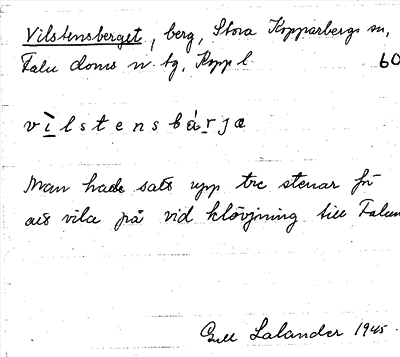 Vilstensberget, berg, Stora Kopparbergs sn,
Falu doms n. tg, Kopp l. 60
vìlstensbárjæ
Man hade satt upp tre stenar för
att vila på vid klövjning till Falun
Lalander 1945.